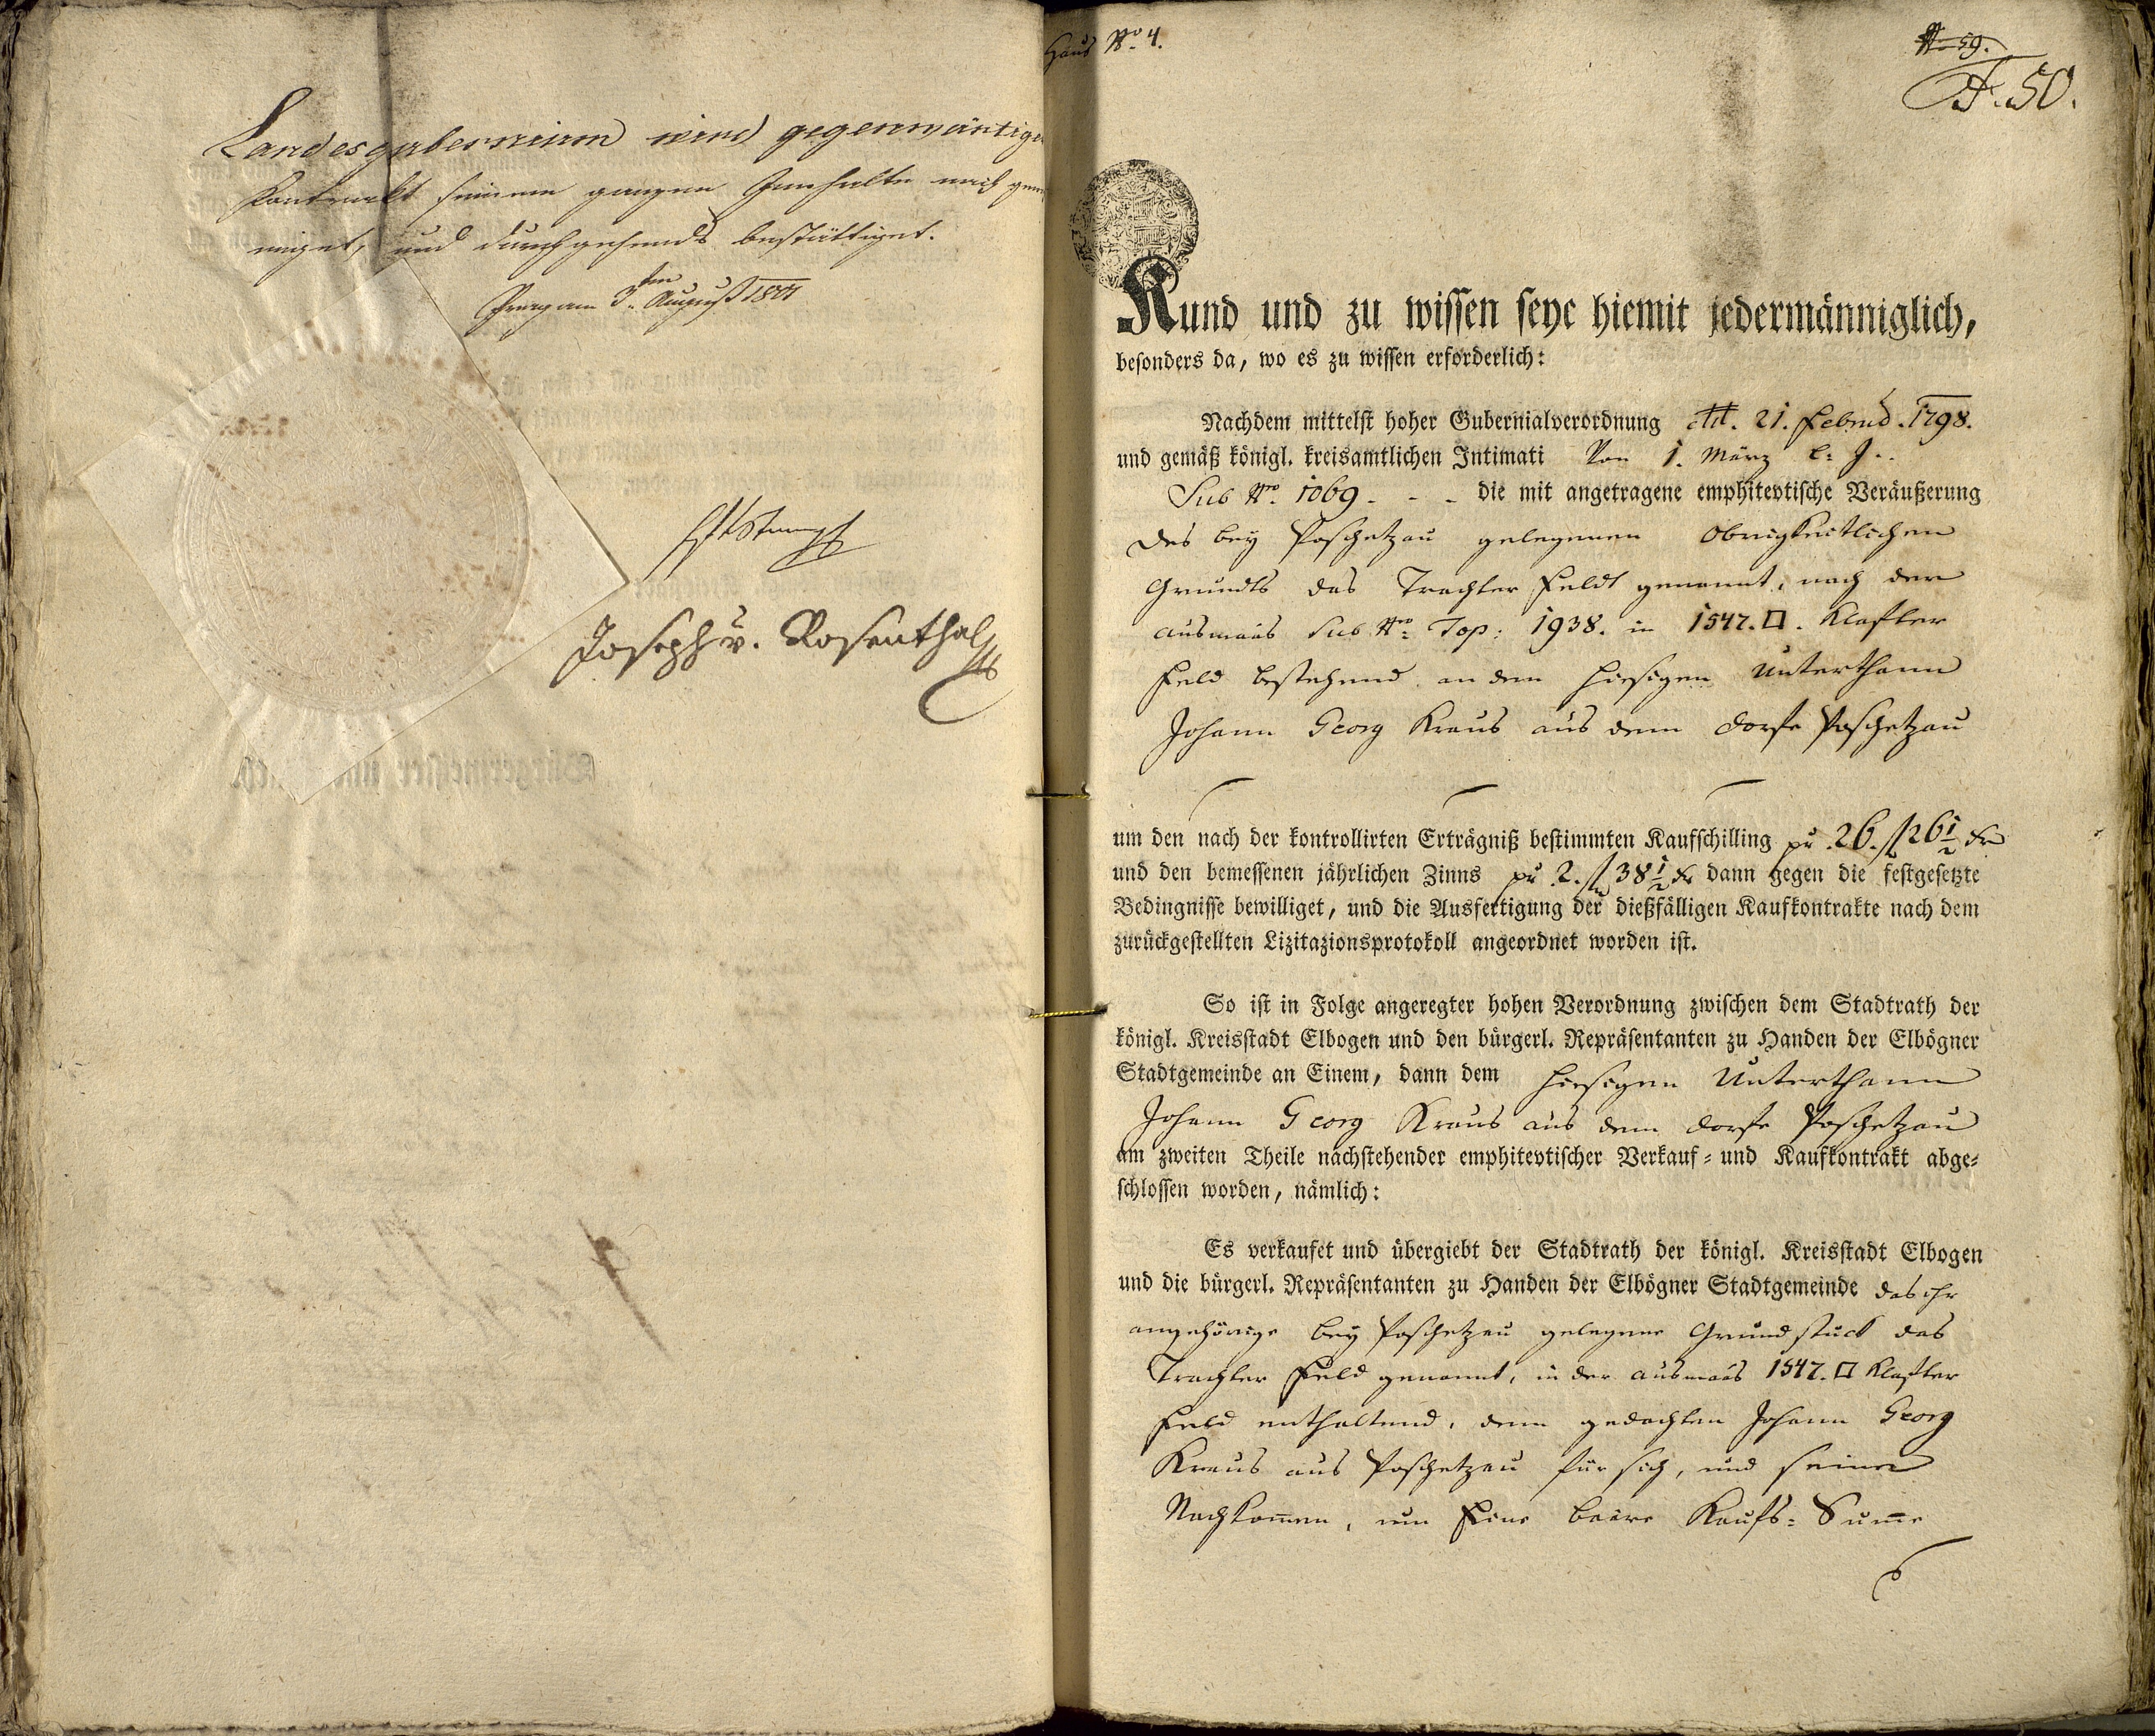 Landesgubernium wird gegenwärtiger
Kontrakt seinem ganzen Innhalte nach geneh
miget, und durchgehends bestättiget.
Prag am 3ten August 1801
Joseph v. Rosenthal
Haus Nro 4.
No 59.
F. 50.
Kund und zu wissen seye hiemit jedermänniglich,
besonders da, wo es zu wissen erforderlich:
Nachdem mittelst hoher Gubernialverordnung dtt. 21. Februar 1798.
und gemäß königl. kreisamtlichen Intimati Von 1. März l: J:
Sub Nro. 1069. - - die mit angetragene emphitevtische Veräußerung
des bey Poschetzau gelegenen obrigkeitlichen
Grundts das Trachter Feldt genannt, nach der
ausmaas sub Nro Top: 1938. in 1547. □. Klafter
Feld bestehend an den hiesigen Unterthann
Johann Georg Kraus aus dem Dorfe Poschetzau
um den nach der kontrollirten Erträgniß bestimmten Kaufschilling pr 26. fl 26 1/2 kr
und den bemessenen jährlichen Zinns pr 2. fl 38 1/2 kr dann gegen die festgesetzte
Bedingnisse bewilliget, und die Ausfertigung der dießfälligen Kaufkontrakte nach dem
zurückgestellten Lizitazionsprotokoll angeordnet worden ist.
So ist in Folge angeregter hohen Verordnung zwischen dem Stadtrath der
königl. Kreisstadt Elbogen und den bürgerl. Repräsentanten zu Handen der Elbögner
Stadtgemeinde an Einem, dann dem hiesigen Unterthann
Johann Georg Kraus aus dem Dorfe Poschetzau
am zweiten Theile nachstehender emphitevtischer Verkauf- und Kaufkontrakt abge-
schlossen worden, nämlich:
Es verkaufet und übergiebt der Stadtrath der königl. Kreisstadt Elbogen
und die bürgerl. Repräsentanten zu Handen der Elbögner Stadtgemeinde das ihr
angehörige bey Poschetzau gelegene Grundstuck das
Trachter Feld genannt, in der ausmaas 1547. □ Klafter
Feld enthaltend, dem gedachten Johann Georg
Kraus aus Poschetzau für sich, und seine
Nachkommen, um Eine baare Kaufs-Summe